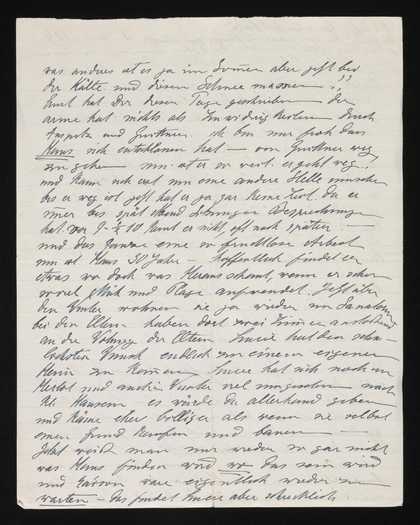 was anderes ist es ja im Sommer aber jetzt bei
der Kälte und diesen Schnee massen !!
hat Dir diesen Tage geschrieben — der
arme hat nichts als
und Gmunden ich bin nur froh dass
Hans sich entschlossen hat — von weg
zu gehen nun ist er er geht weg
und kann sich erst um eine andere Stelle umsehen
bis er weg ist jetzt hat er ja gar keine Zeit. Da er
immer bis spät Abend Sitzungen Besprechungen
hat. Vor 9 - ½ 10 kommt er nicht, oft noch später —
und das Ganze eine so fruchtlose Arbeit
nun ist Hans 30 Jahre — hoffentlich findet er
etwas wo doch was Heraus schaut, wenn er schon
so viel Müh und Plage aufwendet. Jetzt über
den Winter wohnen sie ja wieder im
bei den Eltern haben dort zwei Zimmer anstossend
an die Wohnung der Eltern hat den sehn-
lichsten Wunsch endlich zu einem eigenen
Heim zu kommen hat sich noch im
Herbst und auch im Winter viel umgesehen nach
Kl. Häusern es würde da allerhand geben
und käme eher billiger als wenn sie selbst
einen Grund kaufen und bauen —
Jetzt weiß man nur wieder so gar nicht
was Hans finden wird wo das sein wird
und davon wäre eigentlich wieder zu
warten — das findet aber schrecklich